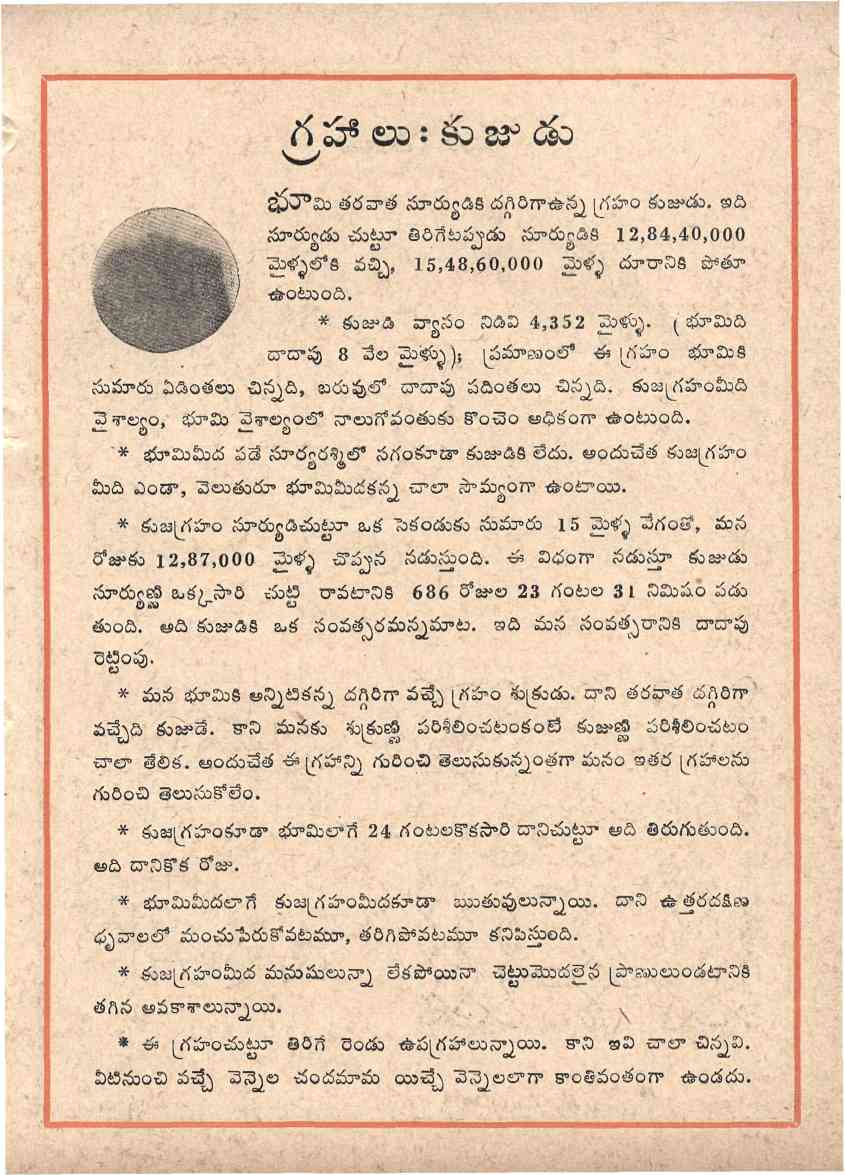 గ్రహాలు : కుజుడు
భూమి తరవాత సూర్యుడికి దగ్గిరిగాఉన్న గ్రహం కుజుడు. ఇది
సూర్యుడు చుట్టూ తిరిగేటప్పుడు సూర్యుడికి 12,84,40,000
మైళ్ళలోకి వచ్చి, 15,48,60,000 మైళ్ళ దూరానికి పోతూ
ఉంటుంది.
* కుజుడి వ్యాసం నిడివి 4,352 మైళ్ళు. (భూమిది
దాదాపు 8 వేల మైళ్ళు); ప్రమాణంలో ఈ గ్రహం భూమికి
సుమారు ఏడింతలు చిన్నది, బరువులో దాదాపు పదింతలు చిన్నది. కుజగ్రహంమీది
వైశాల్యం, భూమి వైశాల్యంలో నాలుగోవంతుకు కొంచెం అధికంగా ఉంటుంది.
* భూమిమీద పడే సూర్యరశ్మిలో సగంకూడా కుజుడికి లేదు. అందుచేత కుజగ్రహం
మీది ఎండా, వెలుతురూ భూమిమీదకన్న చాలా సౌమ్యంగా ఉంటాయి.
* కుజగ్రహం సూర్యుడిచుట్టూ ఒక సెకండుకు సుమారు 15 మైళ్ళ వేగంతో, మన
రోజుకు 12,87,000 మైళ్ళ చొప్పున నడుస్తుంది. ఈ విధంగా నడుస్తూ కుజుడు
సూర్యుణ్ణి ఒక్కసారి చుట్టి రావటానికి 686 రోజుల 23 గంటల 31 నిమిషం పడు
తుంది. అది కుజుడికి ఒక సంవత్సరమన్నమాట. ఇది మన సంవత్సరానికి దాదాపు
రెట్టింపు.
* మన భూమికి అన్నిటికన్న దగ్గిరిగా వచ్చే గ్రహం శుక్రుడు. దాని తరవాత దగ్గిరిగా
వచ్చేది కుజుడే. కాని మనకు శుక్రుణ్ణి పరిశీలించటంకంటే కుజుణ్ణి పరిశీలించటం
చాలా తేలిక. అందుచేత ఈ గ్రహాన్ని గురించి తెలుసుకున్నంతగా మనం ఇతర గ్రహాలను
గురించి తెలుసుకోలేం.
* కుజగ్రహంకూడా భూమిలాగే 24 గంటలకొకసారి దానిచుట్టూ అది తిరుగుతుంది.
అది దానికొక రోజు.
* భూమిమీదలాగే కుజగ్రహంమీదకూడా ఋతువులున్నాయి. దాని ఉత్తరదక్షిణ
ధృవాలలో మంచుపేరుకోవటమూ, తరిగిపోవటమూ కనిపిస్తుంది.
* కుజగ్రహంమీద మనుషులున్నా లేకపోయినా చెట్టుమొదలైన ప్రాణులుండటానికి
తగిన అవకాశాలున్నాయి.
* ఈ గ్రహంచుట్టూ తిరిగే రెండు ఉపగ్రహాలున్నాయి. కాని ఇవి చాలా చిన్నవి.
వీటినుంచి వచ్చే వెన్నెల చందమామ యిచ్చే వెన్నెలలాగా కాంతివంతంగా ఉండదు.